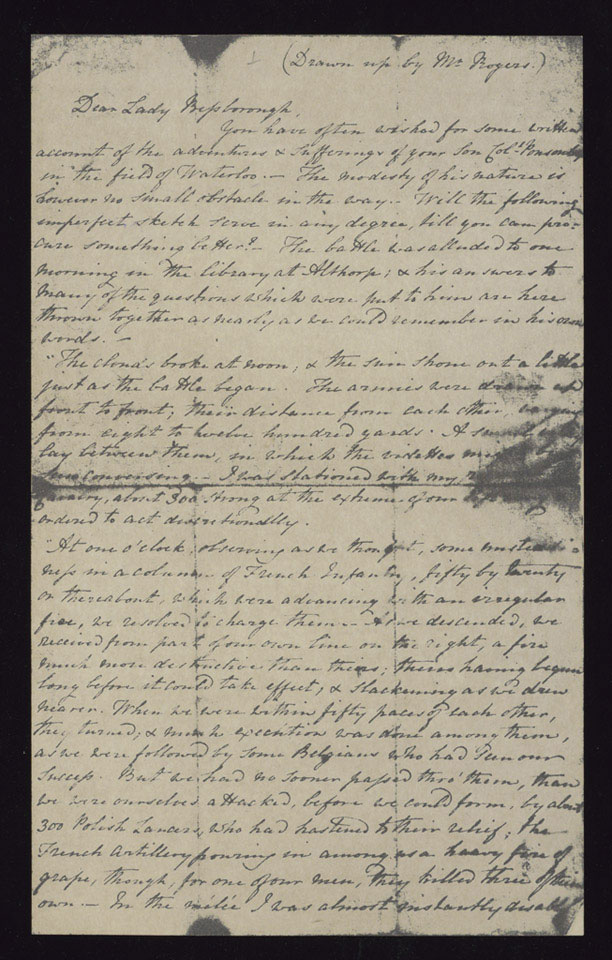 (Drawn up by Mr Rogers.)
Dear Lady Bessborough,
You have often wished for some written
account of the adventures & sufferings of your Son Col. Ponsonby
in the field of Waterloo. — The modesty of his nature is
however no small obstacle in the way. — Will the following
imperfect sketch serve in any degree, till you can pro-
cure something better? — The battle was alluded to one
morning in the library at Althorp; & his answers to
many of the questions which were put to him are here
thrown together as nearly as we could remember in his own
words. —
"The clouds broke at noon; & the sun shone out a little
just as the battle began. The armies were drawn up
front to front; their distance from each other
from eight to twelve hundred yards. A small
lay between them, in which the vedettes
conversing — I was stationed with my
Cavalry, about 300 strong at the extreme of our
ordered to act discretionally.
"At one o'clock, observing as we thought, some unsteadi-
ness in a column of French Infantry, fifty by twenty
or thereabout, which were advancing with an irregular
fire, we resolved to charge them — As we descended, we
received from part of our own line on the right, a fire
much more destructive than theirs; theirs having begun
long before it could take effect, & slackening as we drew
nearer. When we were within fifty paces of each other,
they turned; & much execution was done among them,
as we were followed by some Belgians who had
success. But we had no sooner passed thro' them, than
we were ourselves attacked, before we could form, by about
300 Polish Lancers, who had hastened to their relief; the
French Artillery pouring in among us a heavy fire of
grape, though, for one of our men, they killed three of their
own — In the melée I was almost instantly disabled